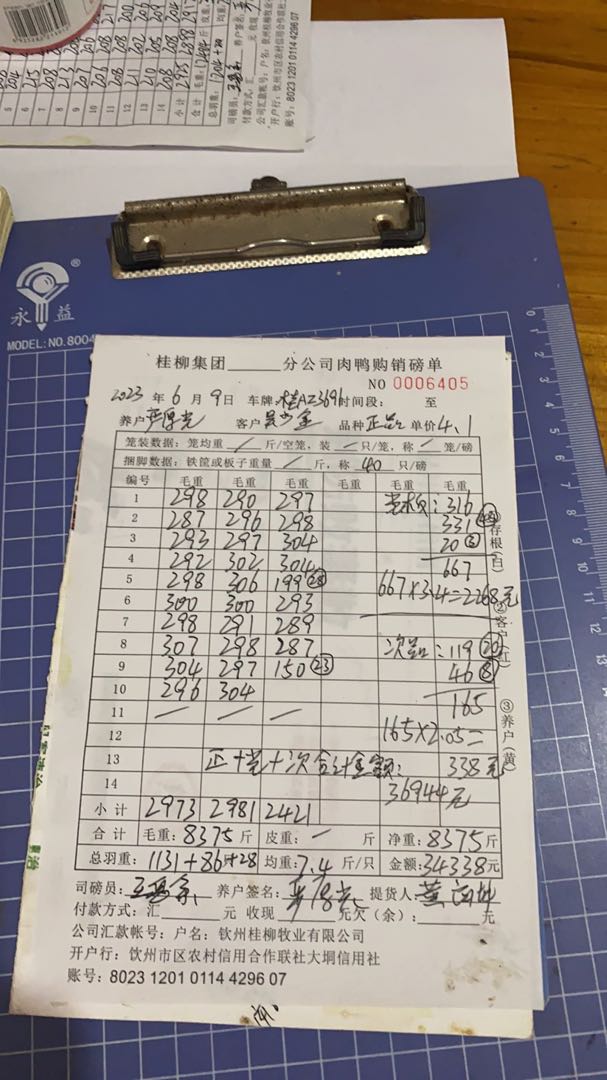 永益
MODEL:NO.8004
桂柳集团 分公司肉鸭购销磅单
NO 0006405
2023 年 6 月 9 日 车牌 桂AZ3691 时间段: 至
养户 客户 品种 正品 单价 4.1
笼装数据:笼均重 / 斤/空笼,装 / 只/笼,称 / 笼/磅
捆脚数据:铁筐或板子重量 / 斤,称 40 只/磅
编号 毛重 毛重 毛重 毛重 毛重 毛重
1 298 290 297 : 316
2 287 296 298 331
3 293 297 304 20 ③
4 292 302 304 667
5 298 306 199 ㉘ 667×3.4=2268元
6 300 300 293
7 298 291 289
8 307 298 287 次品: 119 ⑳
9 304 297 150 ㉓ 46 ⑧
10 296 304 165
11 / / / 165×2.05=
12 338元
13 正+ +次合计金额:
14 36944元
小计 2973 2981 2421
合计 毛重:8375斤 皮重: / 斤 净重:8375斤
总羽重: 1131+86只+28 均重:7.4 斤/只 金额:34338元
司磅员: 养户签名: 提货人:
付款方式:汇 元 收现 元欠(余): 元
公司汇款帐号:户名:钦州桂柳牧业有限公司
开户行:钦州市区农村信用合作联社大垌信用社
账号:8023 1201 0114 4296 07
存根(白)
②客户(红)
③养户(黄)